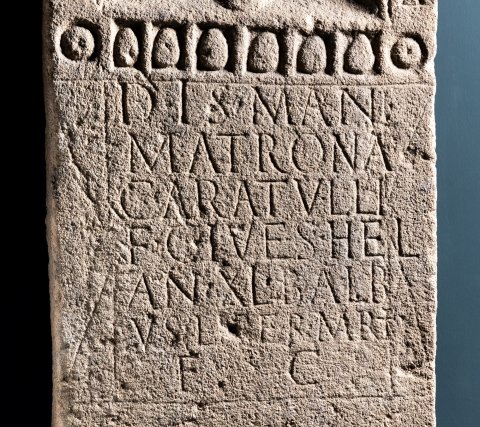 DIS MAN
MATRONA
CARATULLI
F CIVES HEL
AN XL BALB
VS L PER MRT
F C